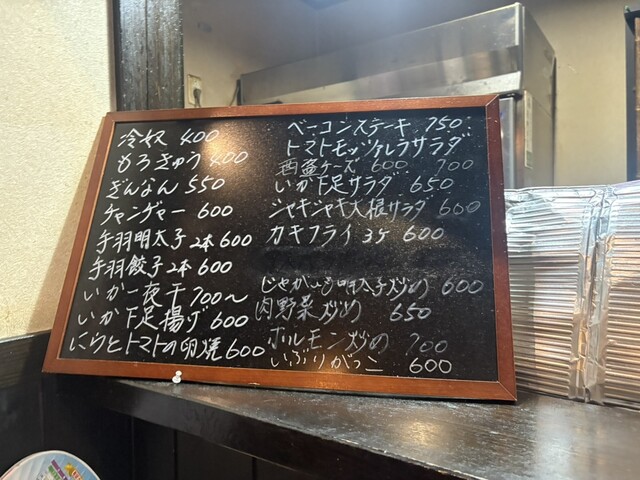 冷奴 400
もろきゅう 400
ぎんなん 550
チャンヂャー 600
手羽明太子 2本 600
手羽餃子 2本 600
いか一夜干 700〜
いか下足揚げ 600
にらとトマトの卵焼 600
ベーコンステーキ 750
トマトモッツァレラサラダ
酒盗チーズ 600 700
いか下足サラダ 650
シャキシャキ大根サラダ 600
カキフライ 3ケ 600
じゃがいも明太子炒め 600
肉野菜炒め 650
ホルモン炒め 700
いぶりがっこ 600